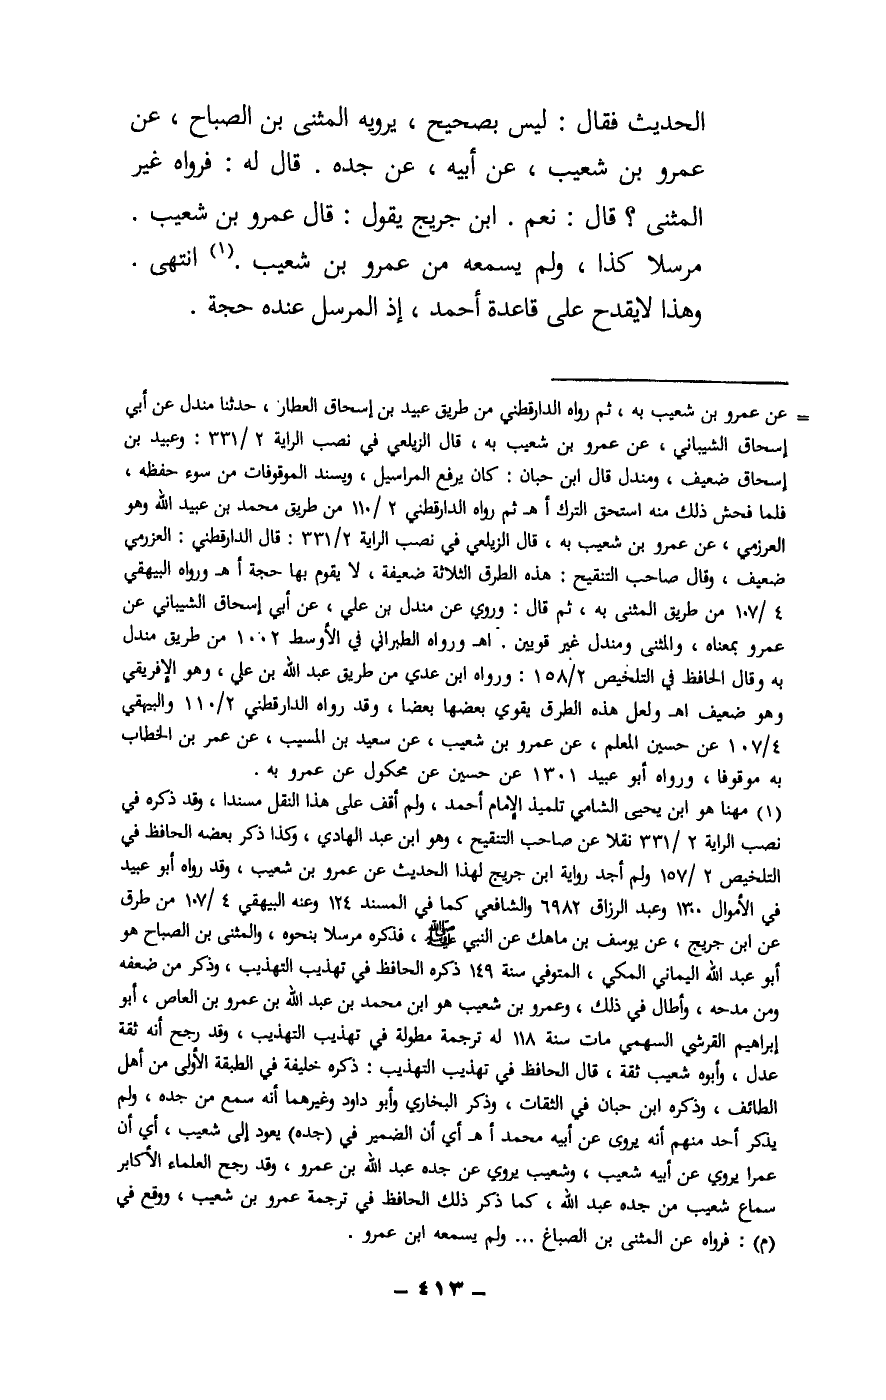 الحديث فقال : ليس بصحيح ، يرويه المثنى بن الصباح ، عن
عمرو بن شعيب ، عن أبيه ، عن جده . قال له : فرواه غير
المثنى ؟ قال : نعم . ابن جريج يقول : قال عمرو بن شعيب .
مرسلا كذا ، ولم يسمعه من عمرو بن شعيب .(١) انتهى .
وهذا لايقدح على قاعدة أحمد ، إذ المرسل عنده حجة .
= عن عمرو بن شعيب به ، ثم رواه الدارقطني من طريق عبيد بن إسحاق العطار ، حدثنا مندل عن أبي
إسحاق الشيباني ، عن عمرو بن شعيب به ، قال الزيلعي في نصب الراية ٢ /٣٣١ : وعبيد بن
إسحاق ضعيف ، ومندل قال ابن حبان : كان يرفع المراسيل ، ويسند الموقوفات من سوء حفظه ،
فلما فحش ذلك منه استحق الترك أ هـ ثم رواه الدارقطني ٢ /١١٠ من طريق محمد بن عبيد الله وهو
العرزمي ، عن عمرو بن شعيب به ، قال الزيلعي في نصب الراية ٣٣١/٢ : قال الدارقطني : العزرمي
ضعيف ، وقال صاحب التنقيح : هذه الطرق الثلاثة ضعيفة ، لا يقوم بها حجة أ هـ ورواه البيهقي
٤ /١٠٧ من طريق المثنى به ، ثم قال : وروي عن مندل بن علي ، عن أبي إسحاق الشيباني عن
عمرو بمعناه ، والمثنى ومندل غير قويين . اهـ ورواه الطبراني في الأوسط ١٠٠٢ من طريق مندل
به وقال الحافظ في التلخيص ١٥٨/٢ : ورواه ابن عدي من طريق عبد الله بن علي ، وهو الإفريقي
وهو ضعيف اهـ ولعل هذه الطرق يقوي بعضها بعضا ، وقد رواه الدارقطني ١١٠/٢ والبيهقي
١٠٧/٤ عن حسين المعلم ، عن عمرو بن شعيب ، عن سعيد بن المسيب ، عن عمر بن الخطاب
به موقوفا ، ورواه أبو عبيد ١٣٠١ عن حسين عن مكحول عن عمرو به .
(١) مهنا هو ابن يحيى الشامي تلميذ الإمام أحمد ، ولم أقف على هذا النقل مسندا ، وقد ذكره في
نصب الراية ٢ /٣٣١ نقلا عن صاحب التنقيح ، وهو ابن عبد الهادي ، وكذا ذكر بعضه الحافظ في
التلخيص ٢ /١٥٧ ولم أجد رواية ابن جريج لهذا الحديث عن عمرو بن شعيب ، وقد رواه أبو عبيد
في الأموال ١٣٠٠ وعبد الرزاق ٦٩٨٢ والشافعي كما في المسند ١٢٤ وعنه البيهقي ٤ /١٠٧ من طرق
عن ابن جريج ، عن يوسف بن ماهك عن النبي ﷺ ، فذكره مرسلا بنحوه ، والمثنى بن الصباح هو
أبو عبد الله اليماني المكي ، المتوفي سنة ١٤٩ ذكره الحافظ في تهذيب التهذيب ، وذكر من ضعفه
ومن مدحه ، وأطال في ذلك ، وعمرو بن شعيب هو ابن محمد بن عبد الله بن عمرو بن العاص ، أبو
إبراهيم القرشي السهمي مات سنة ١١٨ له ترجمة مطولة في تهذيب التهذيب ، وقد رجح أنه ثقة
عدل ، وأبوه شعيب ثقة ، قال الحافظ في تهذيب التهذيب : ذكره خليفة في الطبقة الأولى من أهل
الطائف ، وذكره ابن حبان في الثقات ، وذكر البخاري وأبو داود وغيرهما أنه سمع من جده ، ولم
يذكر أحد منهم أنه يروى عن أبيه محمد أ هـ أي أن الضمير في (جده) يعود إلى شعيب ، أي أن
عمرا يروي عن أبيه شعيب ، وشعيب يروي عن جده عبد الله بن عمرو ، وقد رجح العلماء الأكابر
سماع شعيب من جده عبد الله ، كما ذكر ذلك الحافظ في ترجمة عمرو بن شعيب ، ووقع في
(م) : فرواه عن المثنى بن الصباغ ... ولم يسمعه ابن عمرو .
- ٤١٣ -